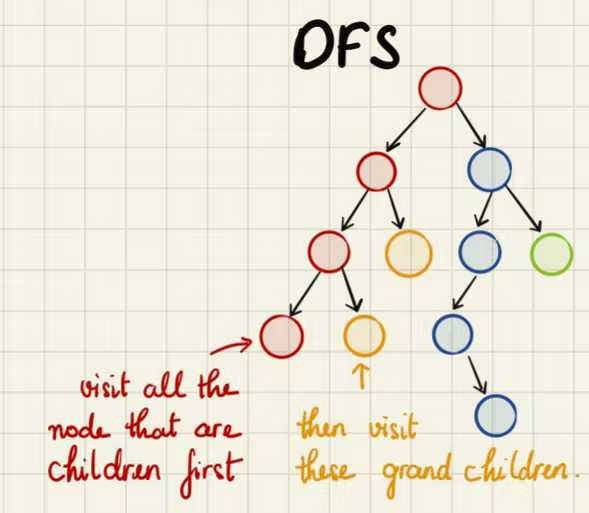 DFS
visit all the
node that are
children first
then visit
these grand children.